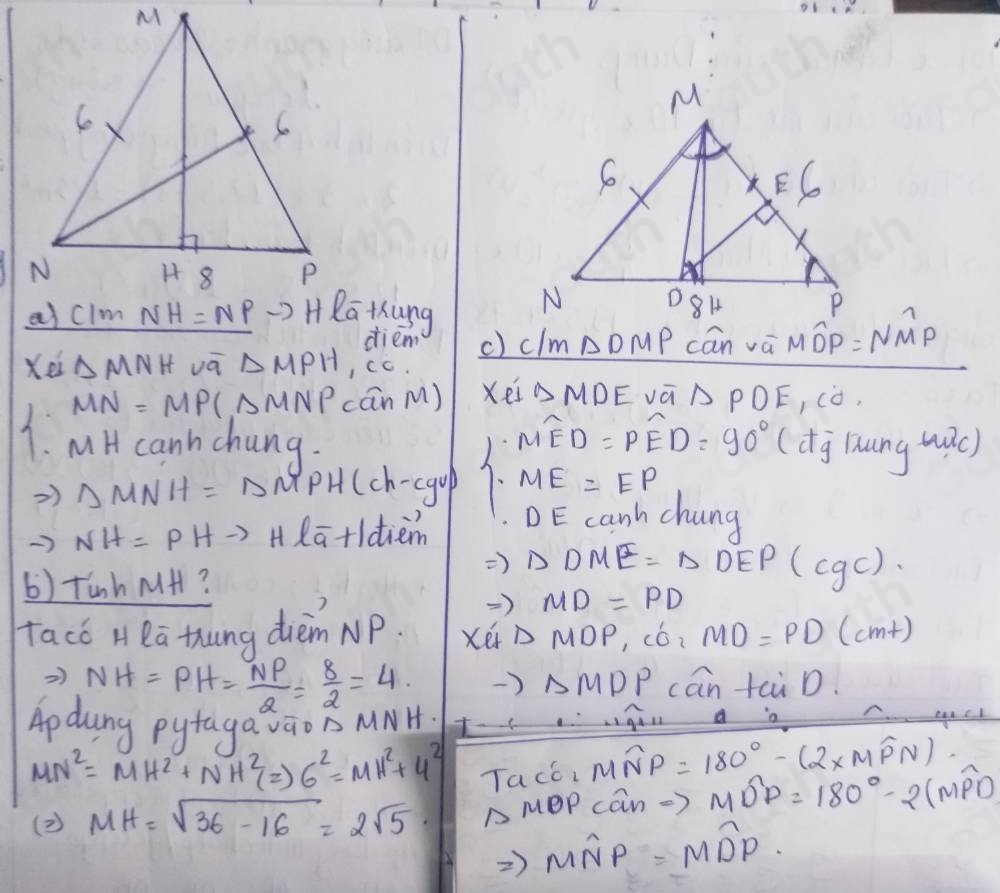 M
6
6
N
H
8
P
a) C/m NH = NP → H là trung điểm
Xét Δ MNH và Δ MPH, có.
. MN = MP (Δ MNP cân M)
. MH cạnh chung.
⇒ Δ MNH = Δ MPH (ch-cgv)
→ NH = PH → H là t/điểm
b) Tính MH?
Ta có H là trung điểm NP.
⇒ NH = PH = NP/2 = 8/2 = 4.
Áp dụng pytaga vào Δ MNH.
MN² = MH² + NH² (=) 6² = MH² + 4²
(=) MH = √36 - 16 = 2√5.
M
6
E
6
N
D
8
H
P
c) c/m Δ DMP cân và MD̂P = NM̂P
Xét Δ MDE và Δ PDE, có.
. MÊD = PÊD = 90° (đg trung trực)
. ME = EP
. DE cạnh chung
⇒ Δ DME = Δ DEP (cgc).
⇒ MD = PD
Xét Δ MDP, có: MD = PD (cmt)
→ Δ MDP cân tại D.
Ta có: MN̂P = 180° - (2 x MP̂N).
Δ MDP cân ⇒ MD̂P = 180° - 2(MP̂D
⇒ MN̂P = MD̂P.